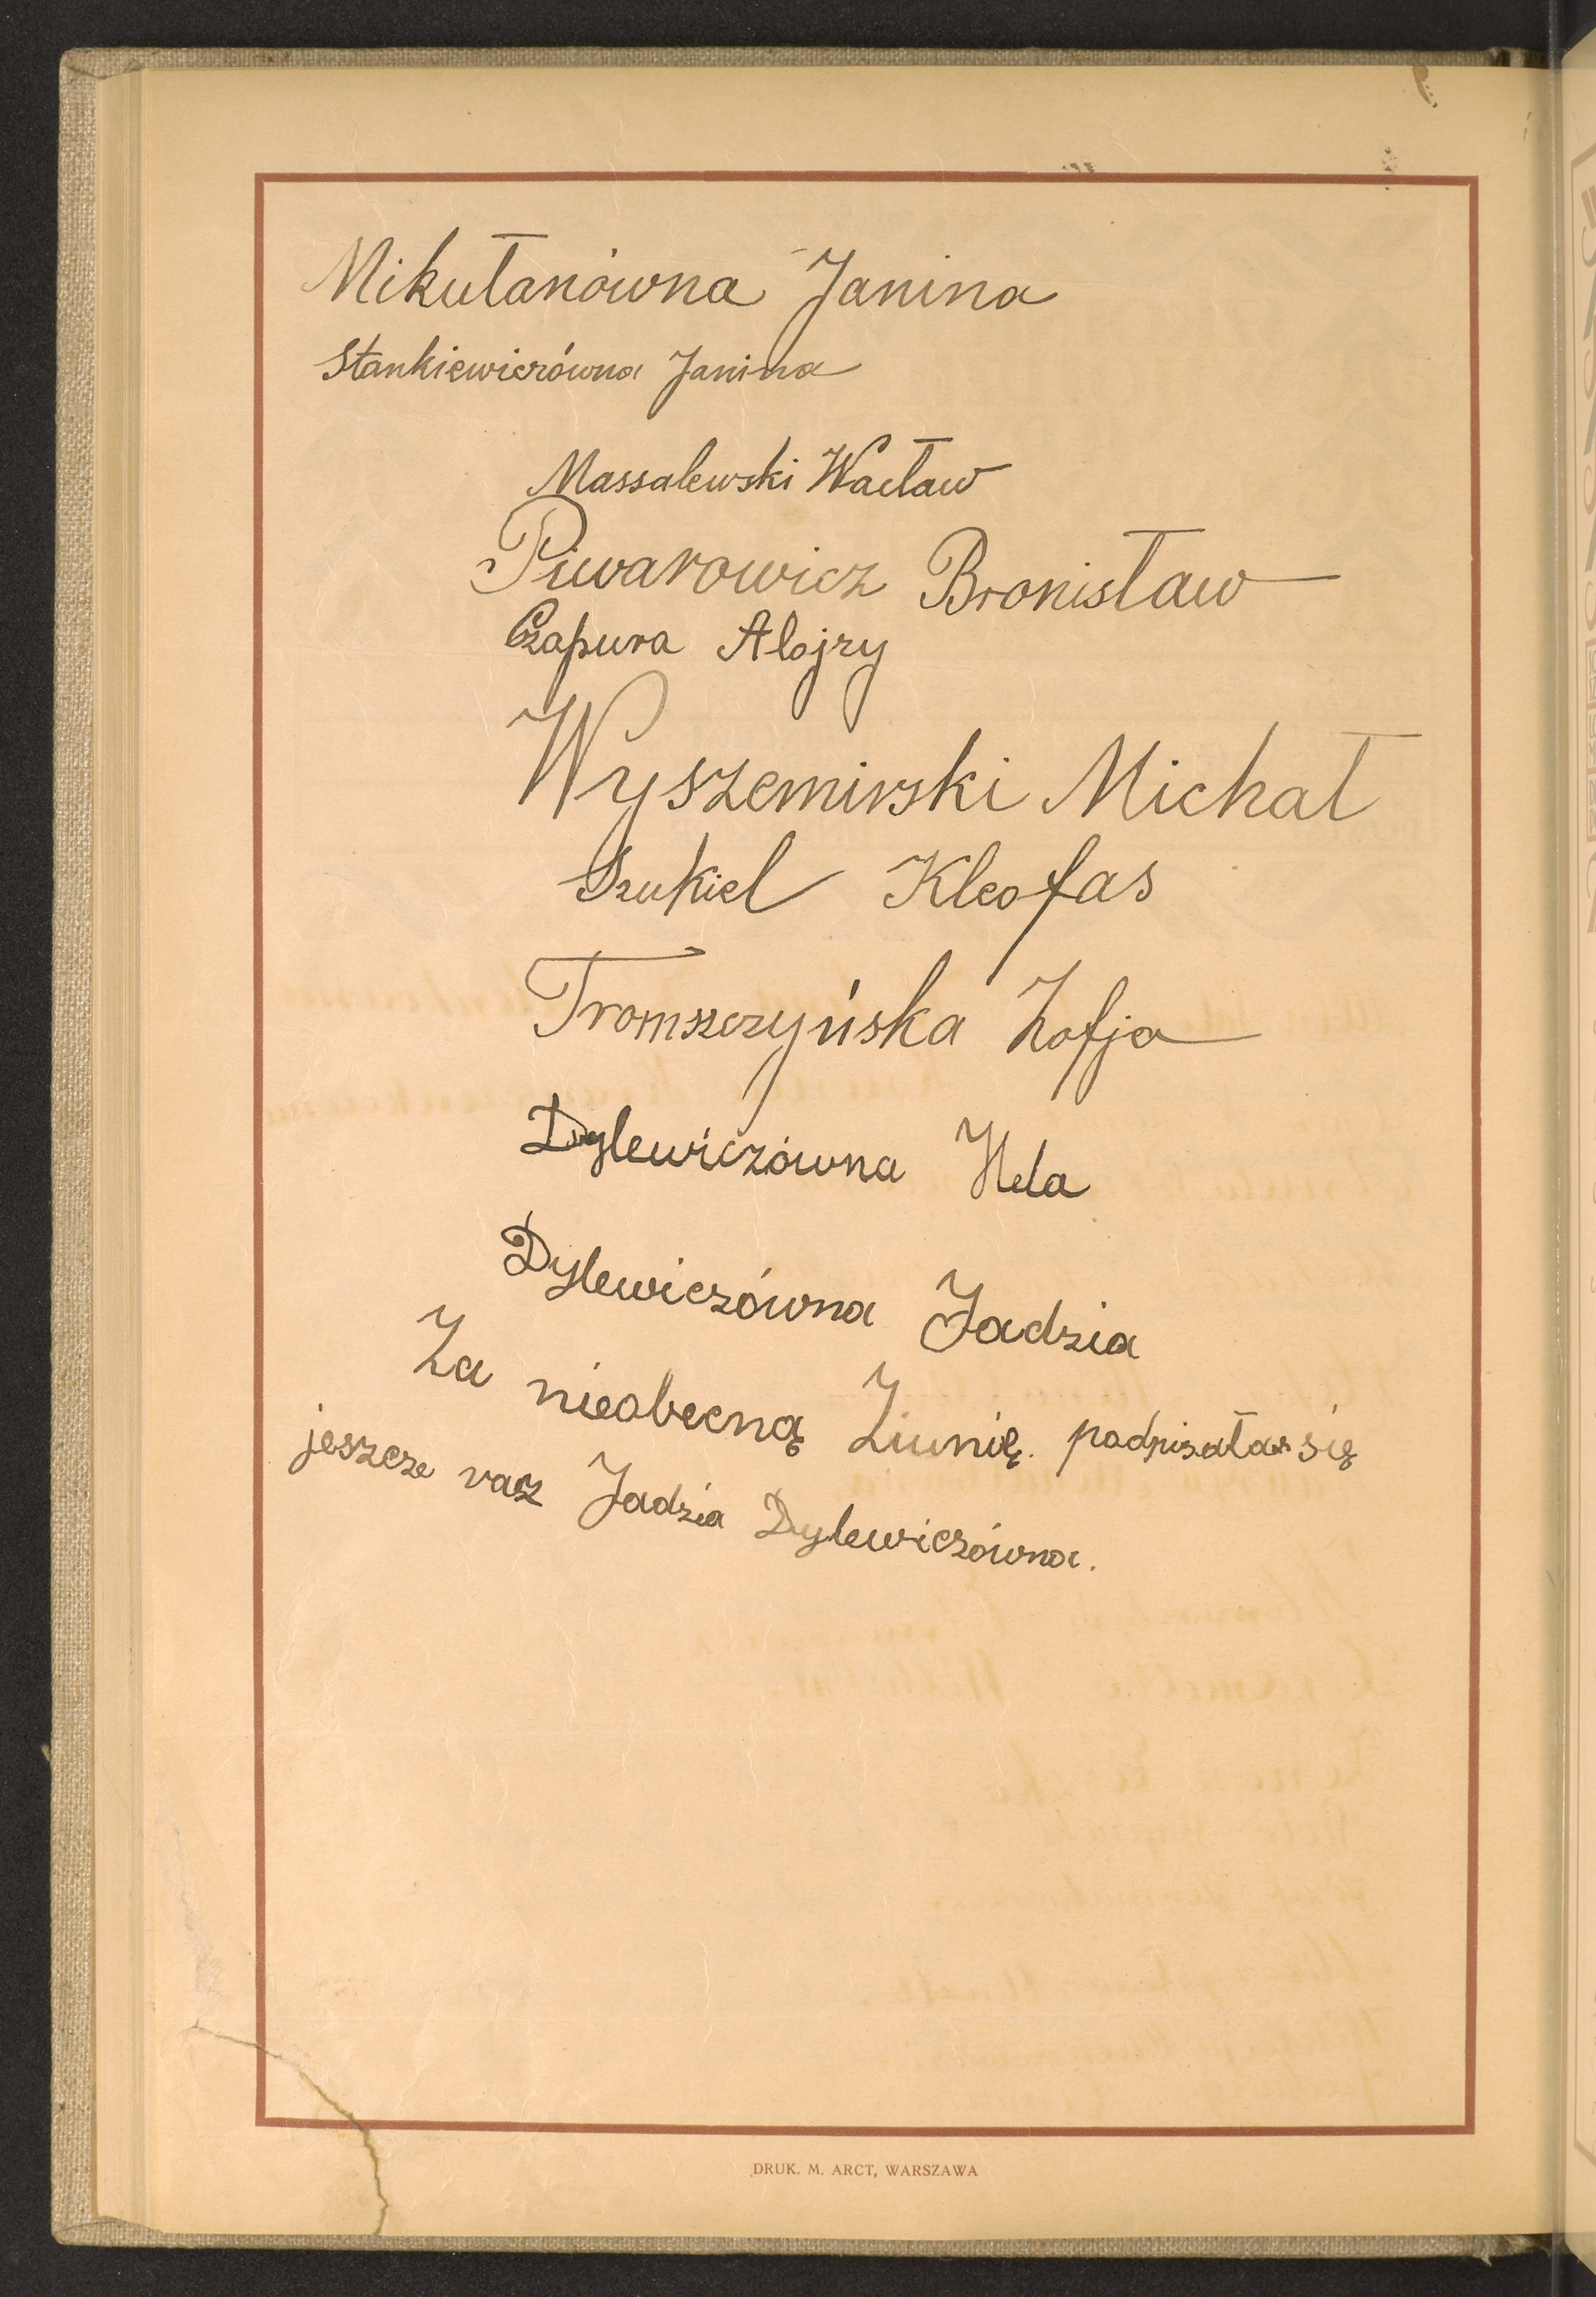 Mikułanówna Janina
Stankiewiczówna Janina
Massalewski Wacław
Piwarowicz Bronisław
Czapura Alojzy
Wyszemirski Michał
Szukiel Kleofas
Tromszczyńska Zofja
Dylewiczówna Hela
Dylewiczówna Jadzia
Za nieobecną Ziunię. podpisała się
jeszcze raz Jadzia Dylewiczówna.
DRUK. M. ARCT, WARSZAWA